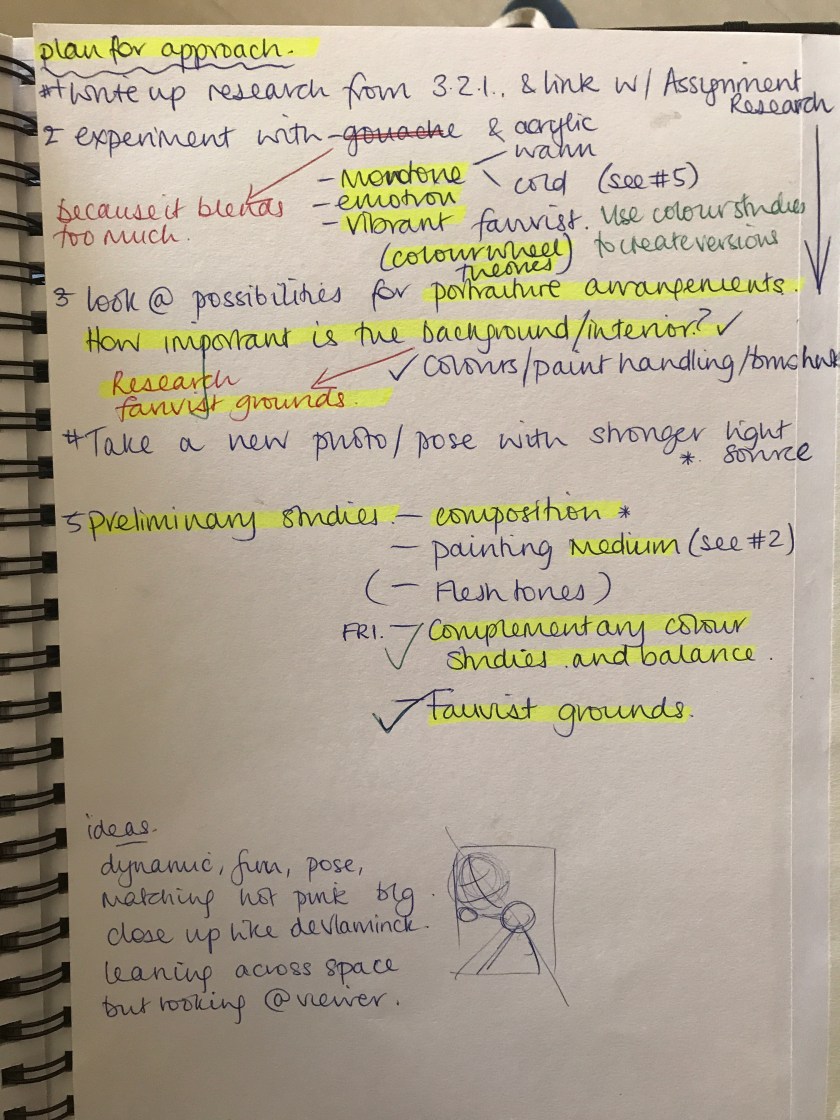 plan for approach.
*1 Write up research from 3.2.1., & link w/ Assignment
Research
2 experiment with gouache & acrylic
- Monotone warm
cold (see #5)
- emotion
- Vibrant fauvist. Use colour studies
to create versions
(colour wheel
theories)
because it blends
too much.
3 look @ possibilities for portraiture arrangements.
How important is the background/interior? ✓
✓ Colours/paint handling/
Research
fauvist grounds.
# Take a new photo/pose with stronger light
* source
5 preliminary studies. - composition *
- painting Medium (see #2)
( - Flesh tones )
FRI. - Complementary colour
✓ studies and balance.
✓ - Fauvist grounds.
ideas.
dynamic, fun, pose,
matching hot pink
close up like devlaminck.
leaning across space
but looking @ viewer.